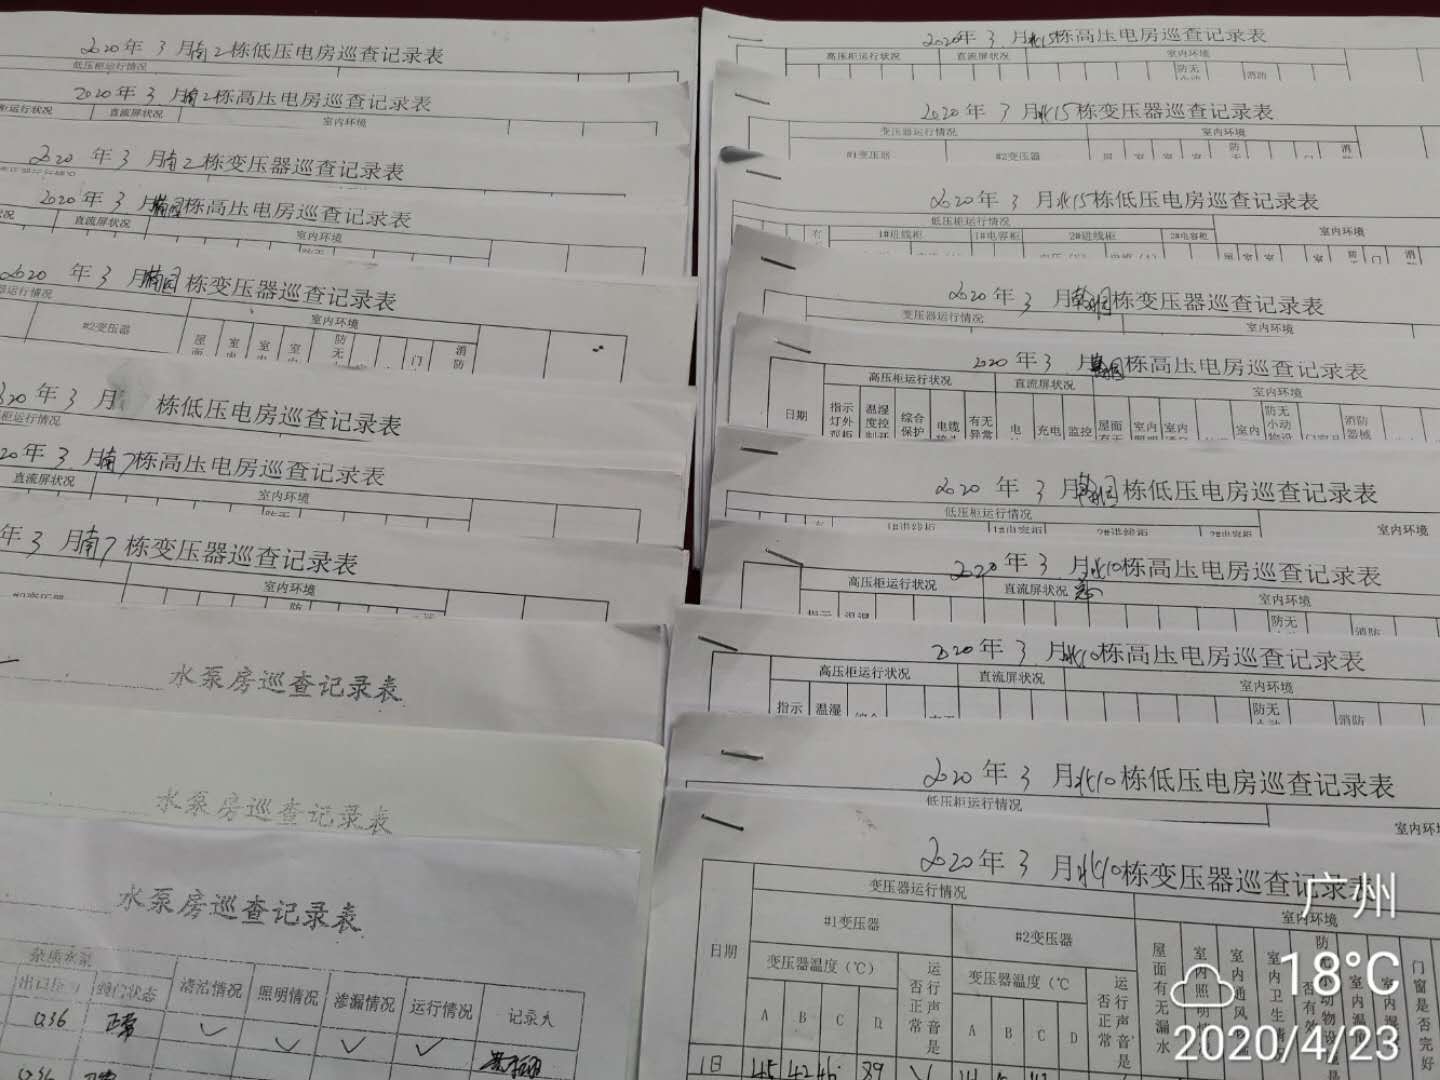 2020年 3 月南2栋低压电房巡查记录表
低压柜运行情况
2020 年 3 月南2栋高压电房巡查记录表
柜运行状况 直流屏状况 室内环境
2020 年 3 月南2栋变压器巡查记录表
2020 年 3 月 栋高压电房巡查记录表
直流屏状况 室内环境
2020 年 3 月 栋变压器巡查记录表
#2变压器 室内环境
防无 门 消防
年 3 月 栋低压电房巡查记录表
柜运行情况
20年 3 月南7栋高压电房巡查记录表
直流屏状况 室内环境
年 3 月南7栋变压器巡查记录表
室内环境
水泵房巡查记录表
水泵房巡查记录表
水泵房巡查记录表
出口压力 阀门状态 清洁情况 照明情况 渗漏情况 运行情况 记录人
0.36 正常 ✓ ✓ ✓ ✓
2020年 3 月北15栋高压电房巡查记录表
高压柜运行状况 直流屏状况 室内环境
防无 消防
2020 年 3 月北15栋变压器巡查记录表
变压器运行情况 室内环境
#1变压器 #2变压器
2020 年 3 月北15栋低压电房巡查记录表
低压柜运行情况 室内环境
1#进线柜 1#电容柜 2#进线柜 2#电容柜
2020 年 3 月 栋变压器巡查记录表
变压器运行情况 室内环境
2020 年 3 月 栋高压电房巡查记录表
高压柜运行状况 直流屏状况 室内环境
日期 指示灯外 温湿度控 综合保护 电缆 有无异常 电 充电 监控 屋面 室内 室内 室内 防无小动 消防器械
2020 年 3 月 栋低压电房巡查记录表
低压柜运行情况 室内环境
1#进线柜 1#电容柜 2#进线柜 2#电容柜
2020 年 3 月北10栋高压电房巡查记录表
高压柜运行状况 直流屏状况 室内环境
指示 温湿 防无 消防
2020 年 3 月北10栋高压电房巡查记录表
高压柜运行状况 直流屏状况 室内环境
指示 温湿 防无 消防
2020 年 3 月北10栋低压电房巡查记录表
低压柜运行情况 室内环
2020年 3 月北10栋变压器巡查记录表
变压器运行情况 室内环境
日期 #1变压器 #2变压器
变压器温度(℃) 运行声音是否正常 变压器温度(℃ 运行声音是否正常 屋面有无漏水 室内照明 室内通风 室内卫生 门窗是否完好
A B C D A B C D
1日 45 42 46 39 ✓
广州
18°C
2020/4/23